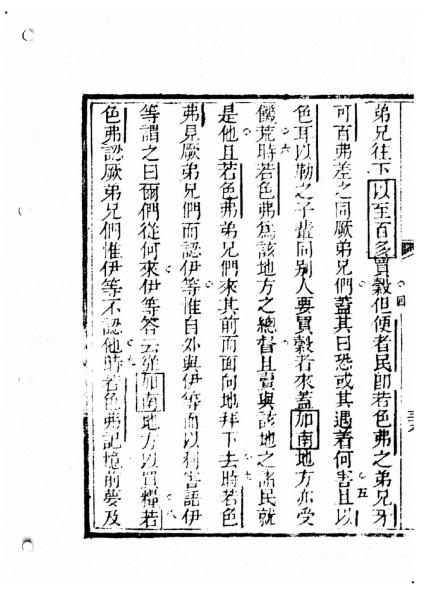 弟兄往下以至百多買穀但便者民即若色弗之弟兄牙
可百弗差之同厥弟兄們蓋其曰恐或其遇着何害且以
色耳以勒之子輩同別人要買穀者來蓋加南地方亦受
饑荒時若色弗為該地方之總督且賣與該地之諸民就
是他且若色弗弟兄們來其前而面向地拜下去時若色
弗見厥弟兄們而認伊等惟自外與伊等而以利害語伊
等謂之曰爾們從何來伊等答云從加南地方以買糧若
色弗認厥弟兄們惟伊等不認他時若色弗記憶前夢及